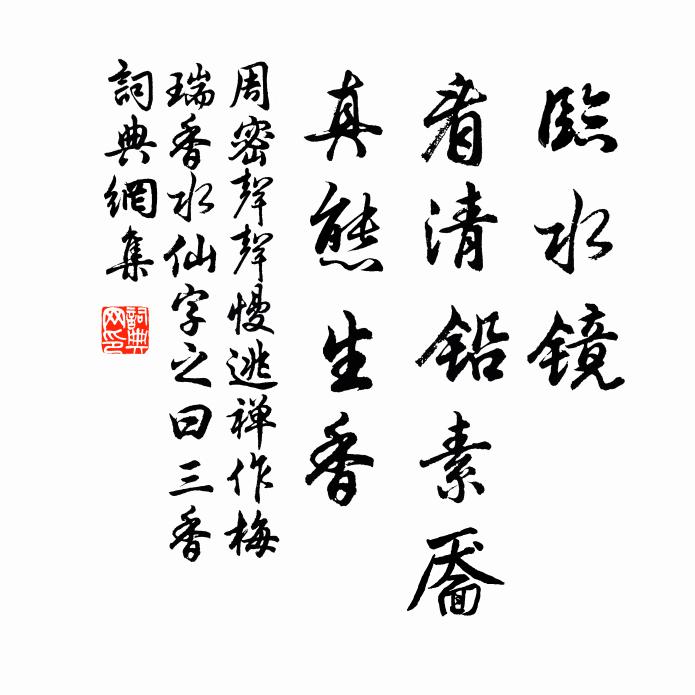 臨水镜
看清铅素靥
真態生香
周密聲聲慢逃禅作梅
瑞香水仙字之曰三香
詞典網集
詞典网印